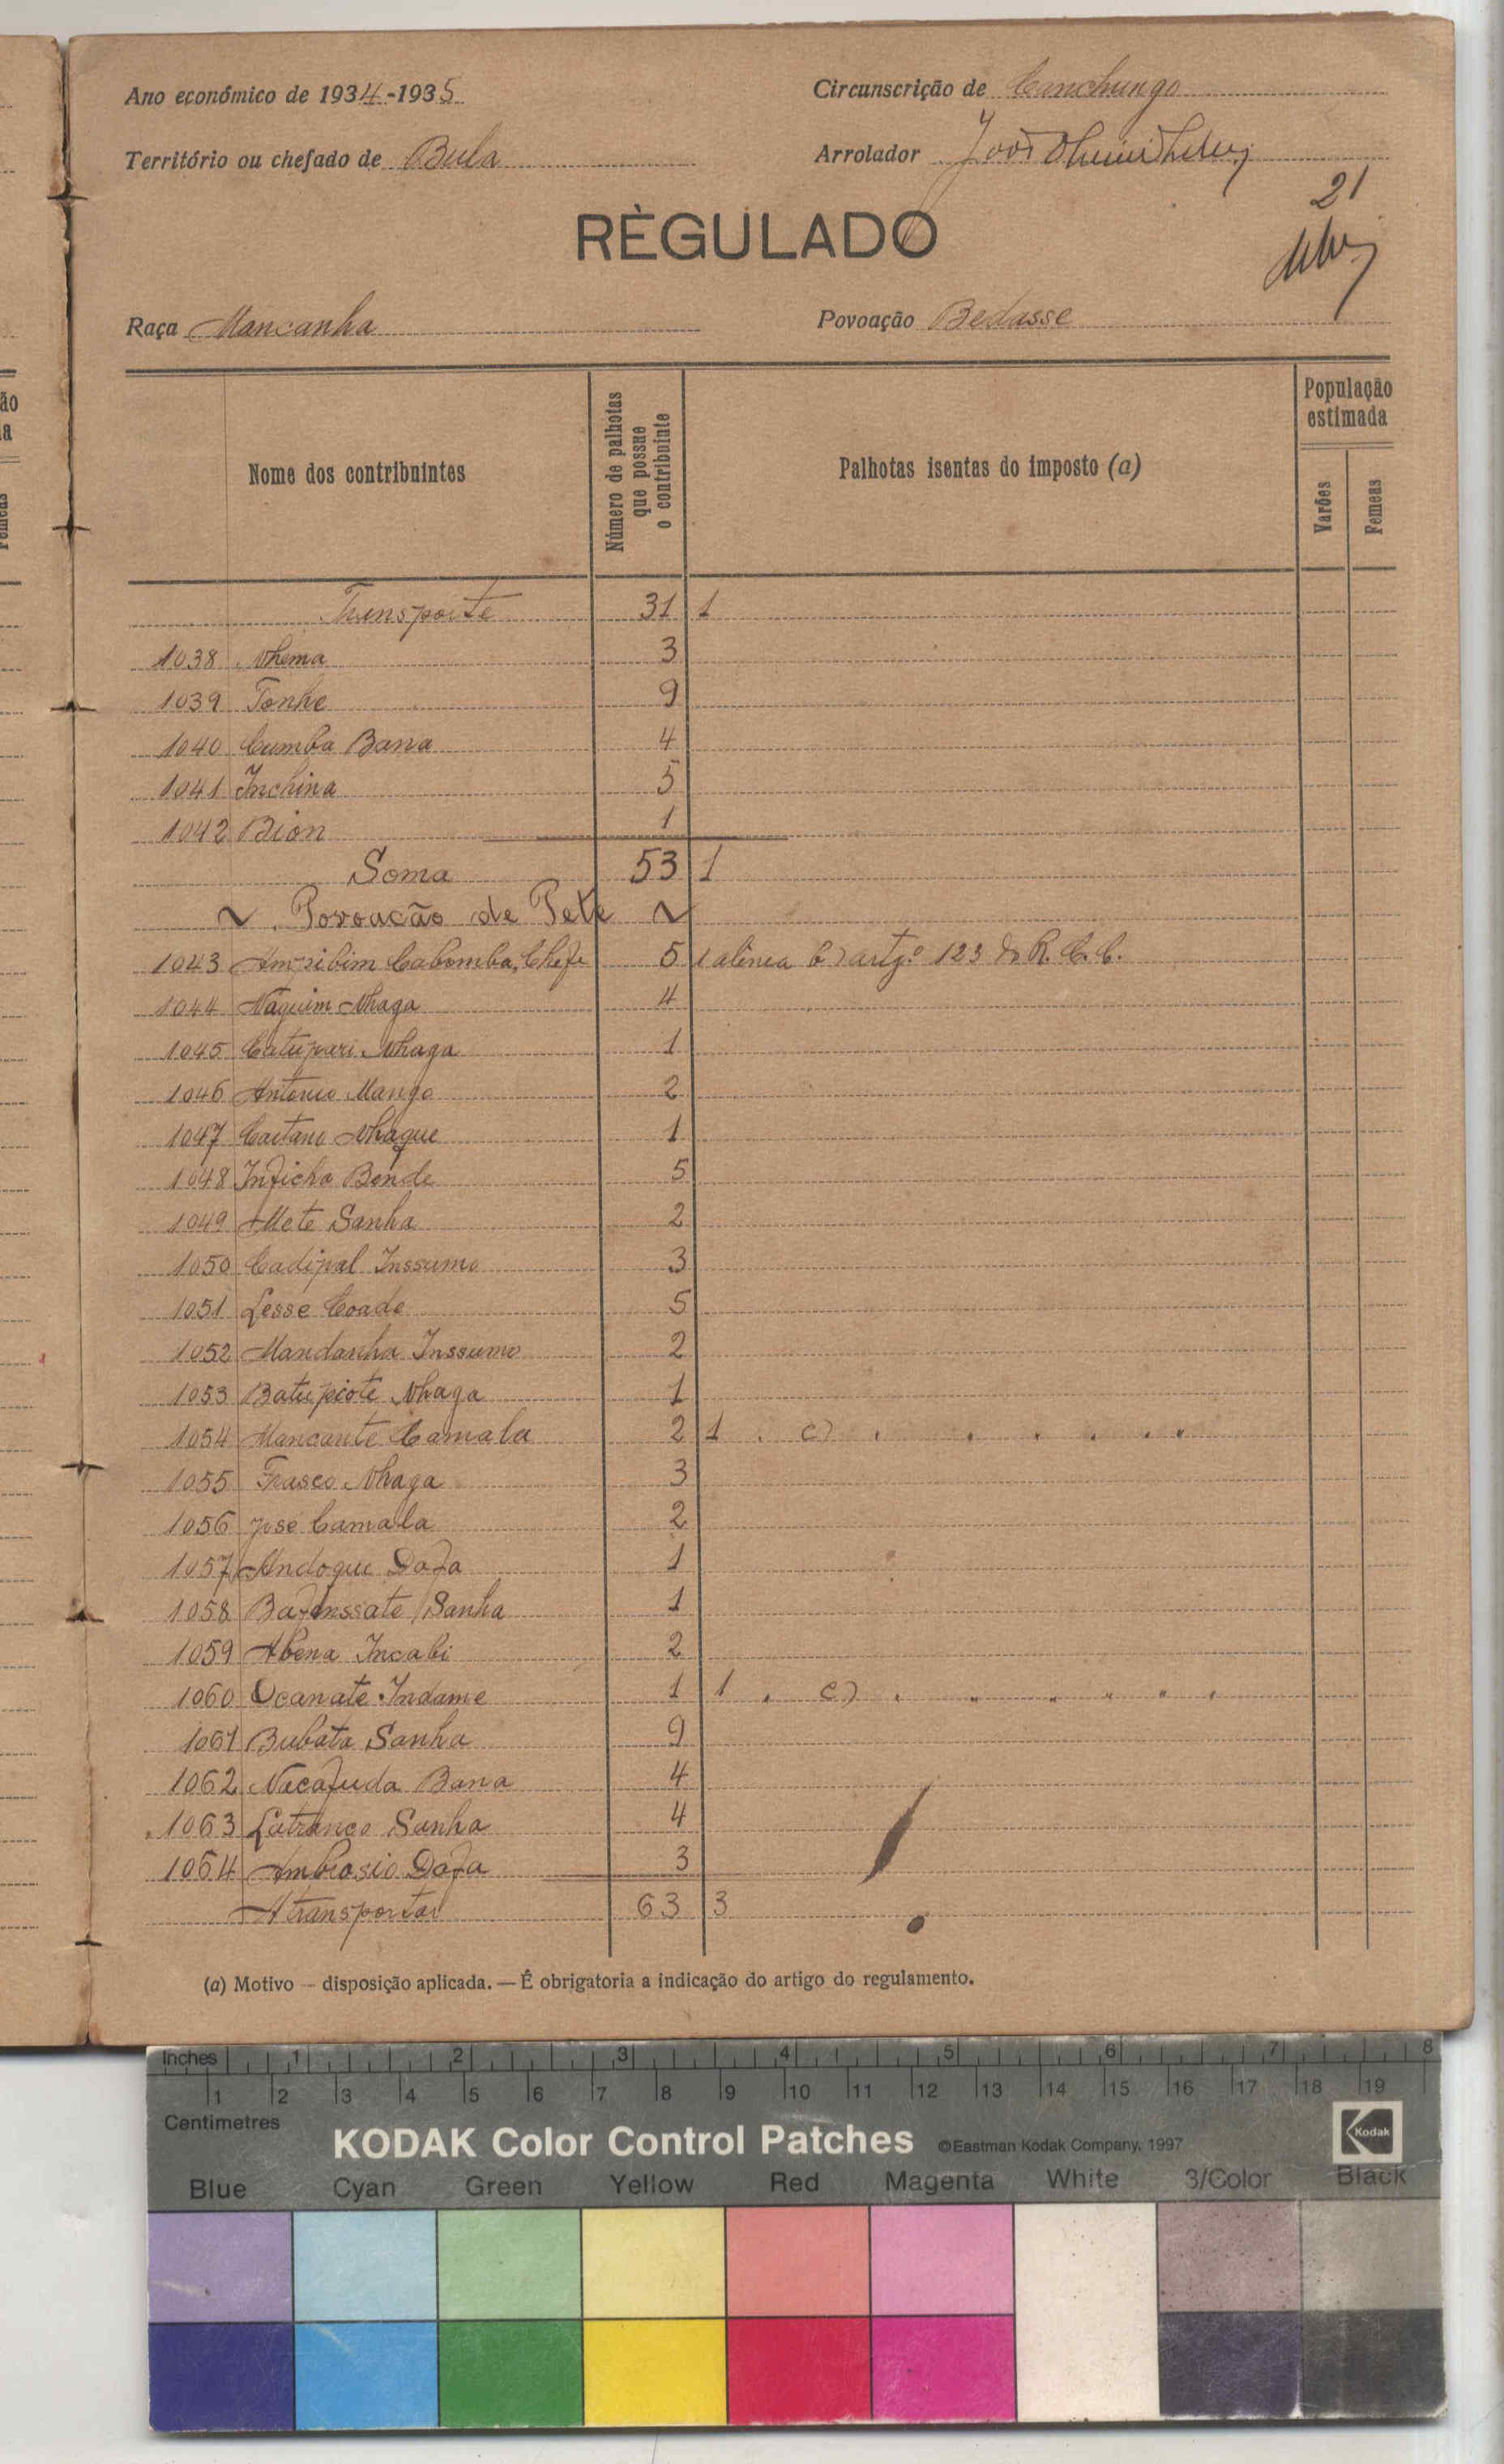 Ano económico de 1934-1935
Circunscrição de Canchungo
Território ou chefado de Bula
Arrolador João
21
RÈGULADO
Raça Mancanha
Povoação Bedasse
Nome dos contribuintes
Número de palhotas que possue o contribuinte
Palhotas isentas do imposto (a)
População estimada
Varões
Femeas
Transporte 31 1
1038 Nhema 3
1039 Tonhe 9
1040 Cumba Bana 4
1041 Inchina 5
1042 Bion 1
Soma 53 1
~ Povoacão de Pete ~
1043 Cabomba, Chefe 5 1 alinea b) artg.º 123 do R. C. C.
1044 Naguim Nhaga 4
1045 Catupari Nhaga 1
1046 Antonio Mango 2
1047 Caetano Nhaque 1
1048 Inficha Bende 5
1049 Mete Sanha 2
1050 Cadipal Inssumo 3
1051 Lesse Coade 5
1052 Mandanha Inssumo 2
1053 Batupiote Nhaga 1
1054 Mancante Camala 2 1 . c) . . . . . .
1055 Frasco Nhaga 3
1056 José Camala 2
1057 Andoque Dafa 1
1058 Sanha 1
1059 Abena Incabi 2
1060 Ocanate Indame 1 1 . c) . " " " " "
1061 Bubata Sanha 9
1062 Nacafuda Bana 4
1063 Latranco Sanha 4
1064 Ambrosio Dafa 3
A transportar 63 3
(a) Motivo — disposição aplicada. — É obrigatoria a indicação do artigo do regulamento.
Inches 1 2 3 4 5 6 7 8
1 2 3 4 5 6 7 8 9 10 11 12 13 14 15 16 17 18 19
Centimetres
KODAK Color Control Patches ©Eastman Kodak Company, 1997 Kodak
Blue Cyan Green Yellow Red Magenta White 3/Color Black